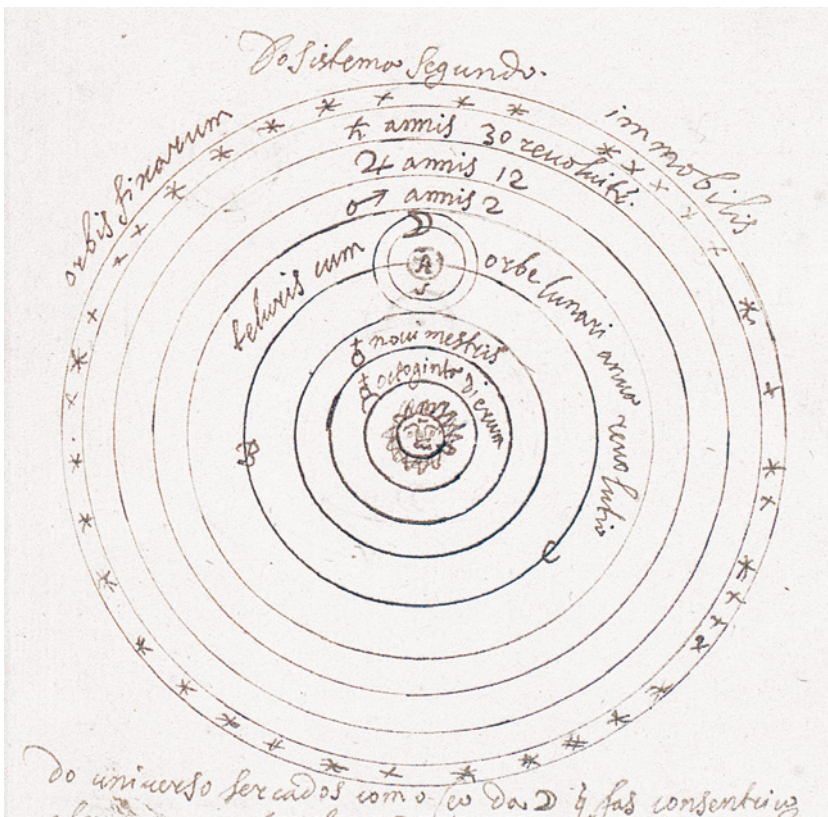 Do sistema segundo.
orbis fixarum immobilis
♄ annis 30 revolvitur.
♃ annis 12
♂ annis 2
telluris cum orbe lunari annua revolutio
☽
A
♀ novimestris
☿ octoginta dierum
B
C
do universo sercados como eo da ☽ q̃ fas consentrico